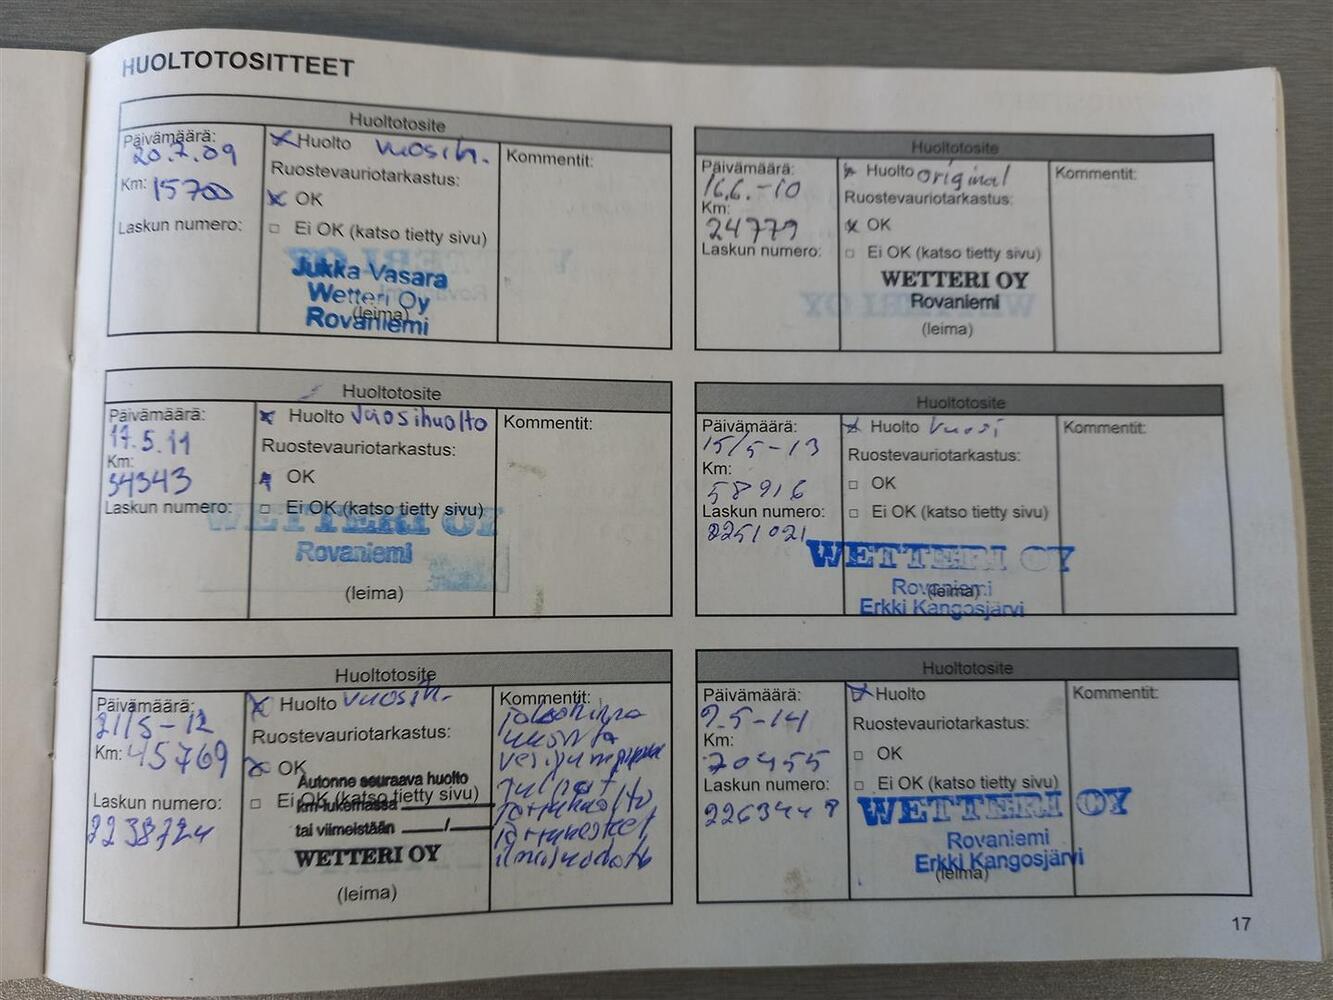 HUOLTOTOSITTEET
Huoltotosite
Päivämäärä:
20.7.09
Km: 15700
Laskun numero:
Huolto vuosih.
Ruostevauriotarkastus:
OK
Ei OK (katso tietty sivu)
Jukka Vasara
Wetteri Oy
(leima)
Rovaniemi
Kommentit:
Huoltotosite
Päivämäärä:
16.6.-10
Km:
24779
Laskun numero:
Huolto original
Ruostevauriotarkastus:
OK
Ei OK (katso tietty sivu)
WETTERI OY
Rovaniemi
(leima)
Kommentit:
Huoltotosite
Päivämäärä:
17.5.11
Km:
34343
Laskun numero:
Huolto vuosihuolto
Ruostevauriotarkastus:
OK
Ei OK (katso tietty sivu)
WETTERI OY
Rovaniemi
(leima)
Kommentit:
Huoltotosite
Päivämäärä:
15/5-13
Km:
58916
Laskun numero:
2251021
Huolto vuosi
Ruostevauriotarkastus:
OK
Ei OK (katso tietty sivu)
WETTERI OY
Rovaniemi
(leima)
Erkki Kangosjärvi
Kommentit:
Huoltotosite
Päivämäärä:
21/5-12
Km: 45769
Laskun numero:
2238724
Huolto vuosih.
Ruostevauriotarkastus:
OK
Autonne seuraava huolto
Ei OK (katso tietty sivu)
km-lukemassa
tai viimeistään ___/___
WETTERI OY
(leima)
Kommentit:
jakohihna
Huoltotosite
Päivämäärä:
9.5-14
Km:
70455
Laskun numero:
2263448
Huolto
Ruostevauriotarkastus:
OK
Ei OK (katso tietty sivu)
WETTERI OY
Rovaniemi
Erkki Kangosjärvi
(leima)
Kommentit:
17